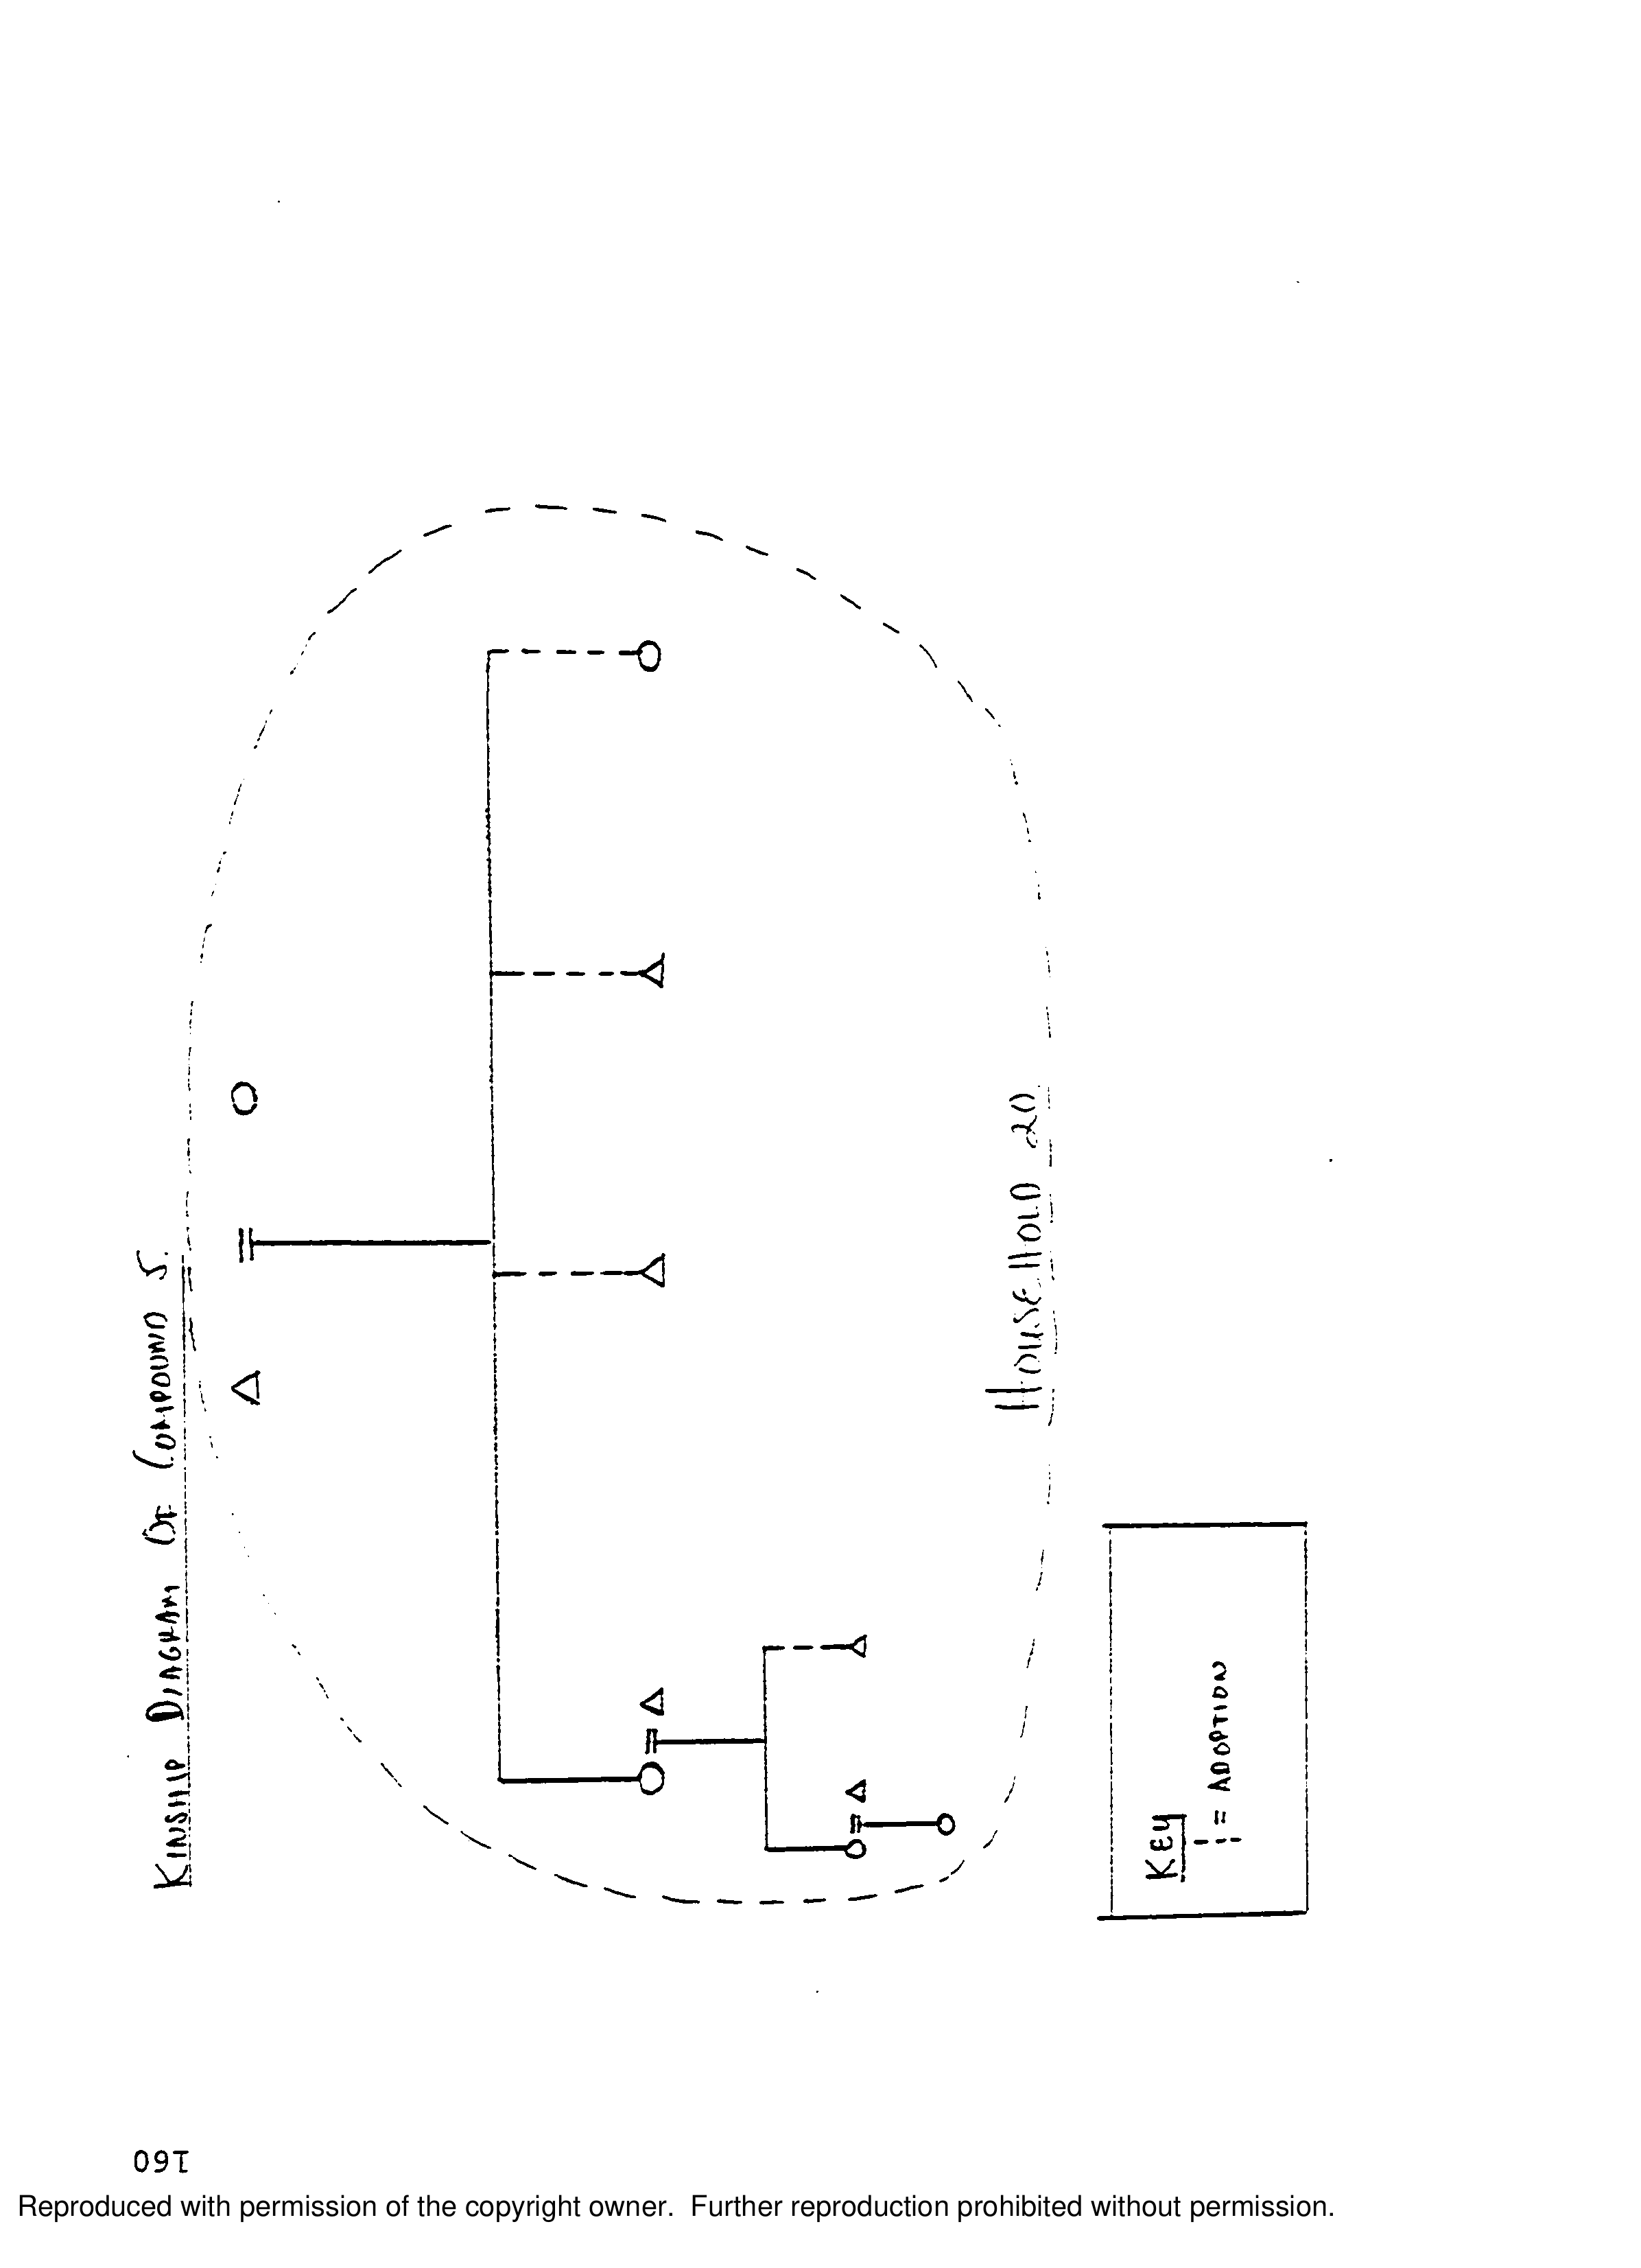 KINSHIP DIAGRAM OF COMPOUND 5.
HOUSEHOLD 20
KEY
¦ = ADOPTION
160
Reproduced with permission of the copyright owner. Further reproduction prohibited without permission.